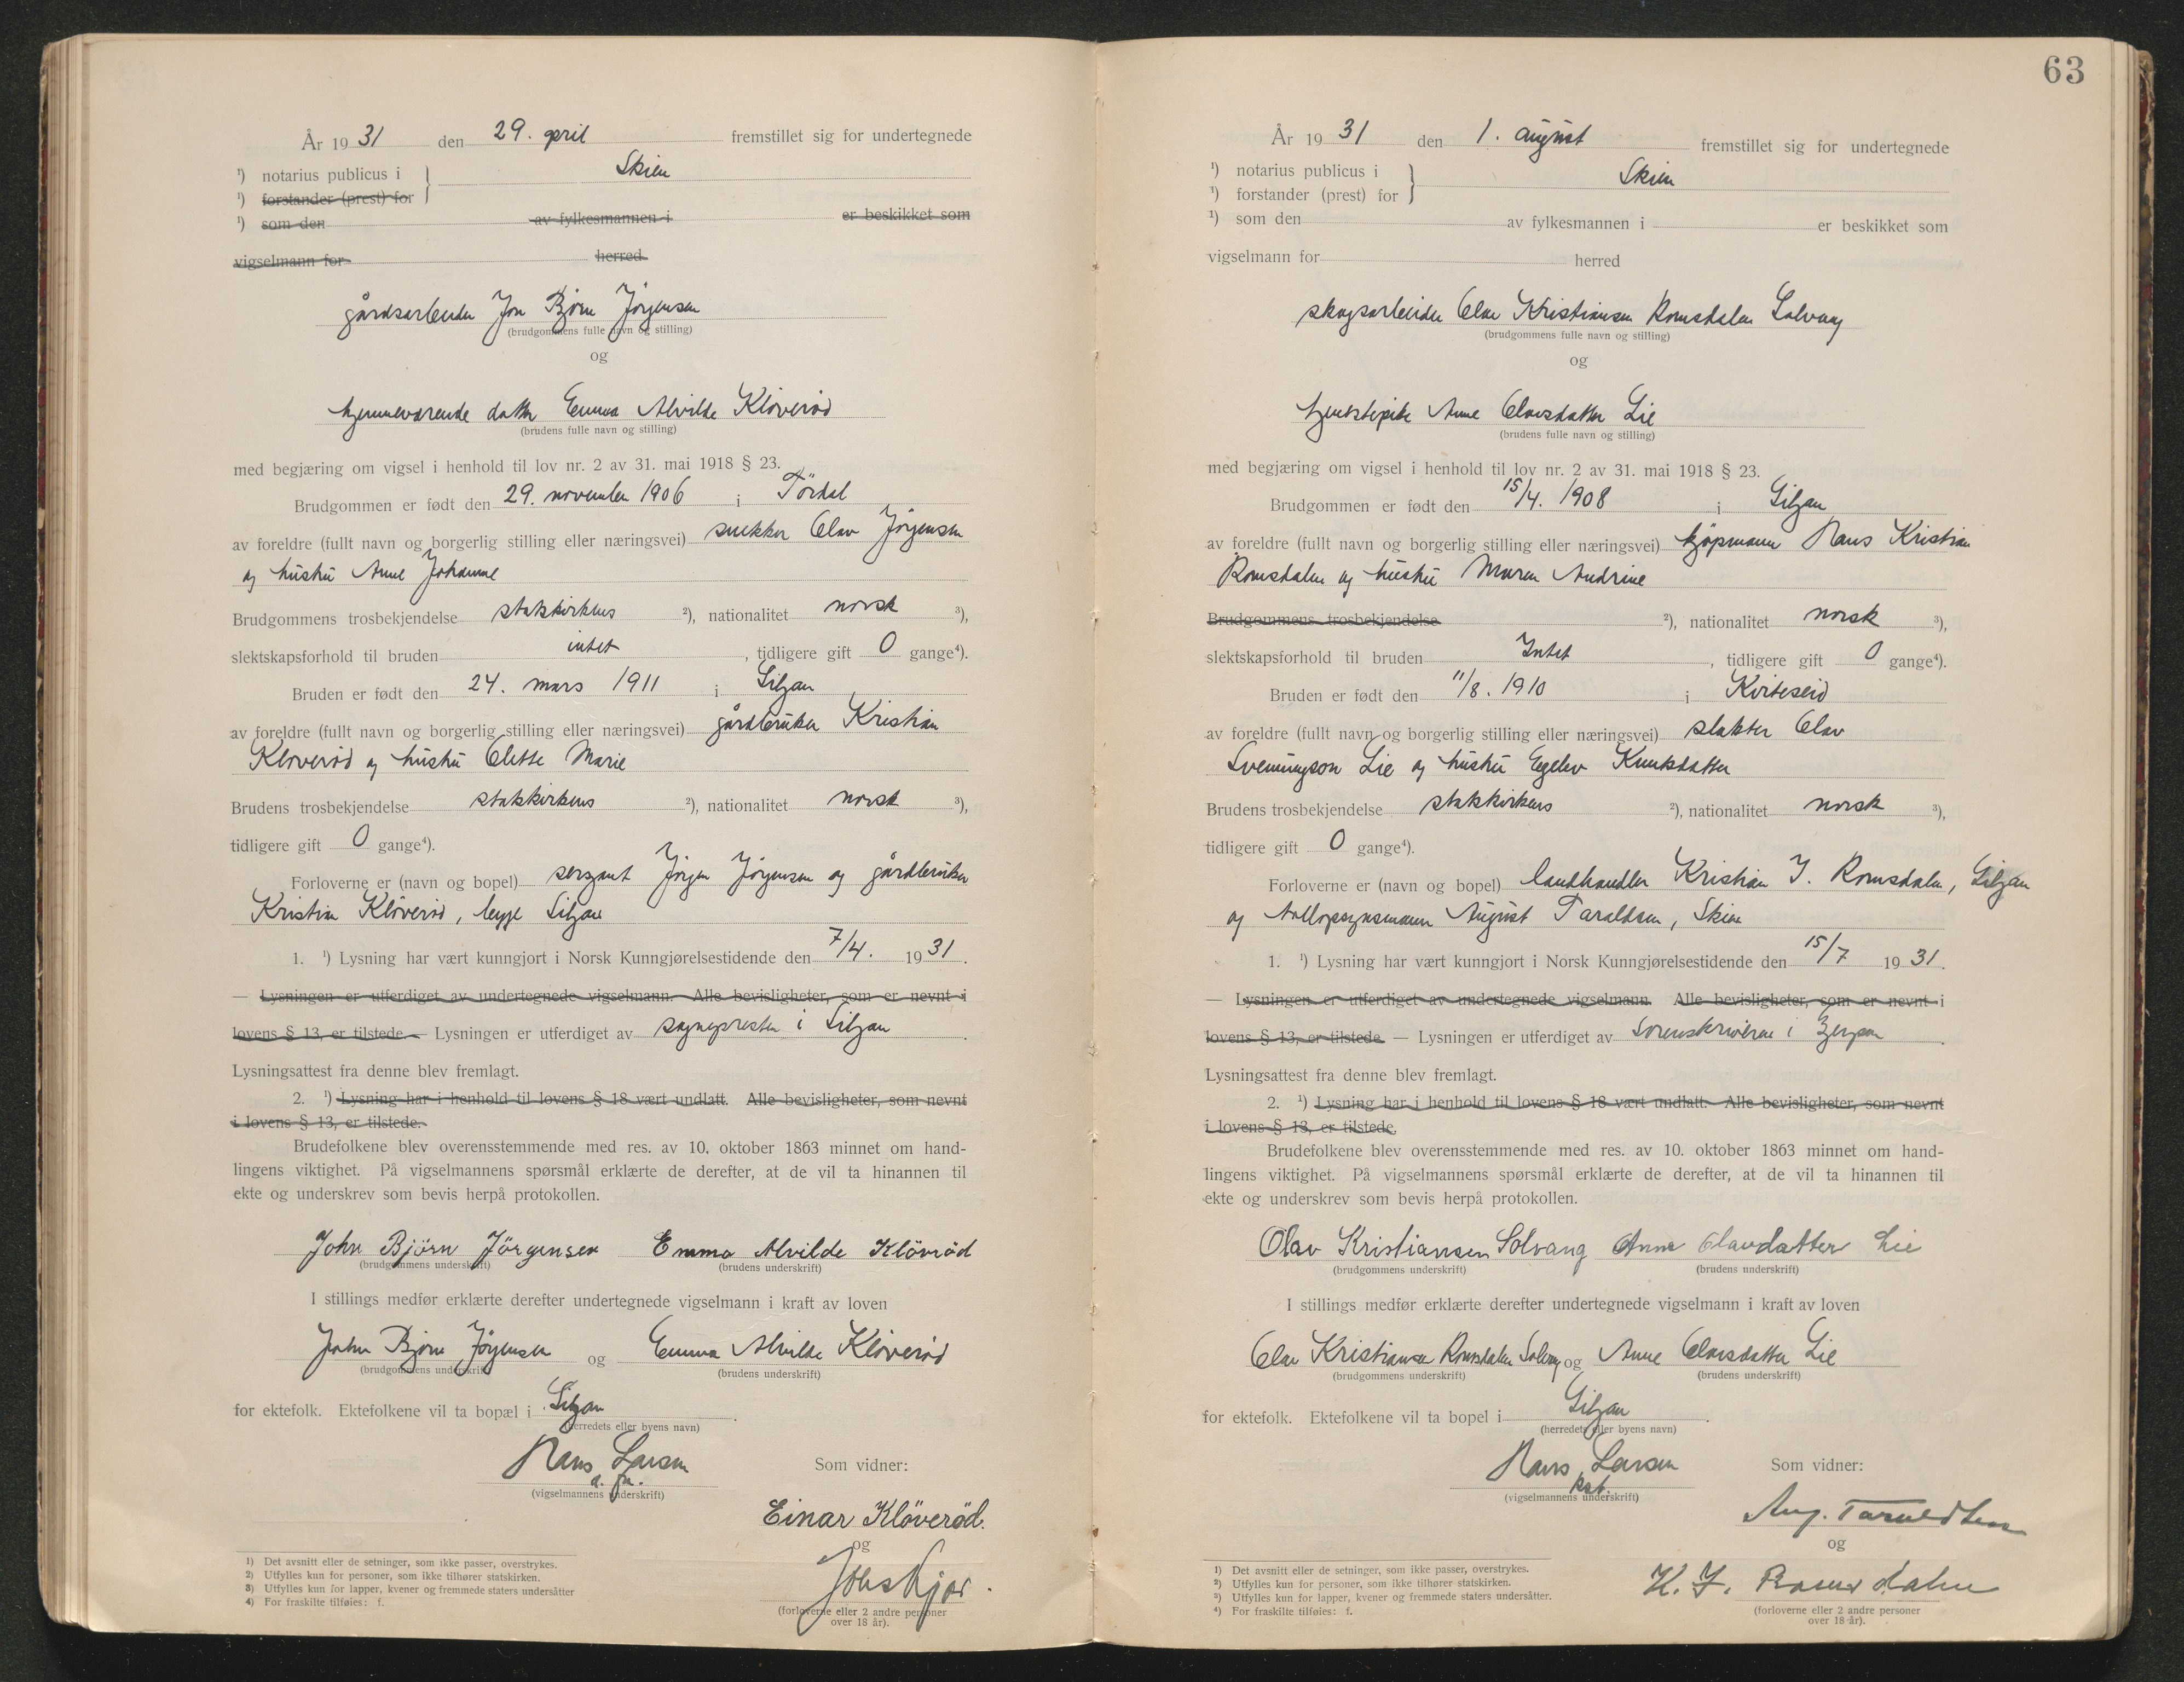 År 1931 den 29. april fremstillet sig for undertegnede
¹) notarius publicus i } Skien
¹) forstander (prest) for
¹) som den av fylkesmannen i er beskikket som
vigselmann for herred
gårdsarbeider Jon Bjørn Jørgensen
(brudgommens fulle navn og stilling)
og
hjemmeværende datter Emma Alvilde Kløverød
(brudens fulle navn og stilling)
med begjæring om vigsel i henhold til lov nr. 2 av 31. mai 1918 § 23.
Brudgommen er født den 29. november 1906 i Tördal
av foreldre (fullt navn og borgerlig stilling eller næringsvei) snekker Olav Jørgensen
og hustru Anne Johanne
Brudgommens trosbekjendelse statskirkens ²), nationalitet norsk ³),
slektskapsforhold til bruden intet, tidligere gift 0 gange⁴).
Bruden er født den 24. mars 1911 i Siljan
av foreldre (fullt navn og borgerlig stilling eller næringsvei) gårdbruker Kristian
Kløverød og hustru Olette Marie
Brudens trosbekjendelse statskirkens ²), nationalitet norsk ³),
tidligere gift 0 gange⁴).
Forloverne er (navn og bopel) sersjant Jørgen Jørgensen og gårdbruker
Kristian Kløverød, begge Siljan
1. ¹) Lysning har vært kunngjort i Norsk Kunngjørelsestidende den 7/4. 1931.
— Lysningen er utferdiget av undertegnede vigselmann. Alle bevisligheter, som er nevnt i
lovens § 13, er tilstede. — Lysningen er utferdiget av sognepresten i Siljan.
Lysningsattest fra denne blev fremlagt.
2. ¹) Lysning har i henhold til lovens § 18 vært undlatt. Alle bevisligheter, som nevnt
i lovens § 13, er tilstede.
Brudefolkene blev overensstemmende med res. av 10. oktober 1863 minnet om hand-
lingens viktighet. På vigselmannens spørsmål erklærte de derefter, at de vil ta hinannen til
ekte og underskrev som bevis herpå protokollen.
John Björn Jörgensen Emma Alvilde Klövröd
(brudgommens underskrift) (brudens underskrift)
I stillings medfør erklærte derefter undertegnede vigselmann i kraft av loven
John Bjørn Jørgensen og Emma Alvilde Kløverød
(brudgommens underskrift) (brudens underskrift)
for ektefolk. Ektefolkene vil ta bopæl i Siljan.
(herredets eller byens navn)
Hans Larsen Som vidner:
(vigselmannens underskrift)
Einar Klöveröd.
og
(forloverne eller 2 andre personer
over 18 år).
1) Det avsnitt eller de setninger, som ikke passer, overstrykes.
2) Utfylles kun for personer, som ikke tilhører statskirken.
3) Utfylles kun for lapper, kvener og fremmede staters undersåtter
4) For fraskilte tilføies: f.
63
År 1931 den 1. august fremstillet sig for undertegnede
¹) notarius publicus i } Skien
¹) forstander (prest) for
¹) som den av fylkesmannen i er beskikket som
vigselmann for herred
skogsarbeider Olav Kristiansen Romsdalen Solvang
(brudgommens fulle navn og stilling)
og
tjenestepike Anne Olavsdatter Lie
(brudens fulle navn og stilling)
med begjæring om vigsel i henhold til lov nr. 2 av 31. mai 1918 § 23.
Brudgommen er født den 15/4. 1908 i Siljan
av foreldre (fullt navn og borgerlig stilling eller næringsvei) kjøpmann Hans Kristian
Romsdalen og hustru Maren Andrine
Brudgommens trosbekjendelse ²), nationalitet norsk ³),
slektskapsforhold til bruden Intet, tidligere gift 0 gange⁴).
Bruden er født den 11/8. 1910 i Kviteseid
av foreldre (fullt navn og borgerlig stilling eller næringsvei) slakter Olav
Sveinungson Lie og hustru Egelev Knutsdatter
Brudens trosbekjendelse statskirkens ²), nationalitet norsk ³),
tidligere gift 0 gange⁴).
Forloverne er (navn og bopel) landhandler Kristian J. Romsdalen, Siljan
og tollopsynsmann August Taraldsen, Skien
1. ¹) Lysning har vært kunngjort i Norsk Kunngjørelsestidende den 15/7 1931.
— Lysningen er utferdiget av undertegnede vigselmann. Alle bevisligheter, som er nevnt i
lovens § 13, er tilstede. — Lysningen er utferdiget av Sorenskriveren i Gjerpen.
Lysningsattest fra denne blev fremlagt.
2. ¹) Lysning har i henhold til lovens § 18 vært undlatt. Alle bevisligheter, som nevnt
i lovens § 13, er tilstede.
Brudefolkene blev overensstemmende med res. av 10. oktober 1863 minnet om hand-
lingens viktighet. På vigselmannens spørsmål erklærte de derefter, at de vil ta hinannen til
ekte og underskrev som bevis herpå protokollen.
Olav Kristiansen Solvang Anne Olavdatter Lie
(brudgommens underskrift) (brudens underskrift)
I stillings medfør erklærte derefter undertegnede vigselmann i kraft av loven
Olav Kristiansen Romsdalen Solvang og Anne Olavsdatter Lie
(brudgommens underskrift) (brudens underskrift)
for ektefolk. Ektefolkene vil ta bopel i Siljan.
(herredets eller byens navn)
Hans Larsen Som vidner:
kst.
(vigselmannens underskrift)
Aug. Taraldsen
og
K. J. Romsdalen
(forloverne eller 2 andre personer
over 18 år).
¹) Det avsnitt eller de setninger, som ikke passer, overstrykes.
²) Utfylles kun for personer, som ikke tilhører statskirken.
³) Utfylles kun for lapper, kvener og fremmede staters undersåtter.
⁴) For fraskilte tilføies: f.